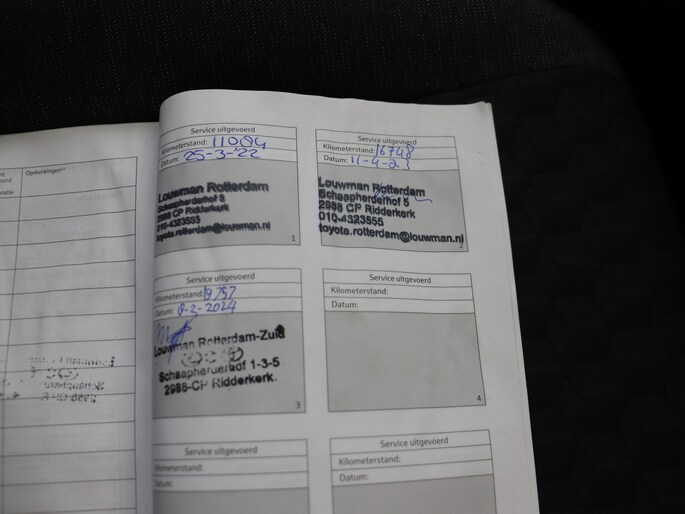 Opmerkingen*¹
Service uitgevoerd
Kilometerstand: 11004
Datum: 25-3-'22
Louwman Rotterdam
Schaapherderhof 5
2988 CP Ridderkerk
010-4323555
toyota.rotterdam@louwman.nl
1
Service uitgevoerd
Kilometerstand: 16748
Datum: 11-4-23
Louwman Rotterdam
Schaapherderhof 5
2988 CP Ridderkerk
010-4323555
toyota.rotterdam@louwman.nl
2
Service uitgevoerd
Kilometerstand: 19757
Datum: 8-2-2024
Louwman Rotterdam-Zuid
Schaapherderhof 1-3-5
2988-CP Ridderkerk.
3
Service uitgevoerd
Kilometerstand:
Datum:
4
Service uitgevoerd
Kilometerstand:
Datum:
Service uitgevoerd
Kilometerstand:
Datum: